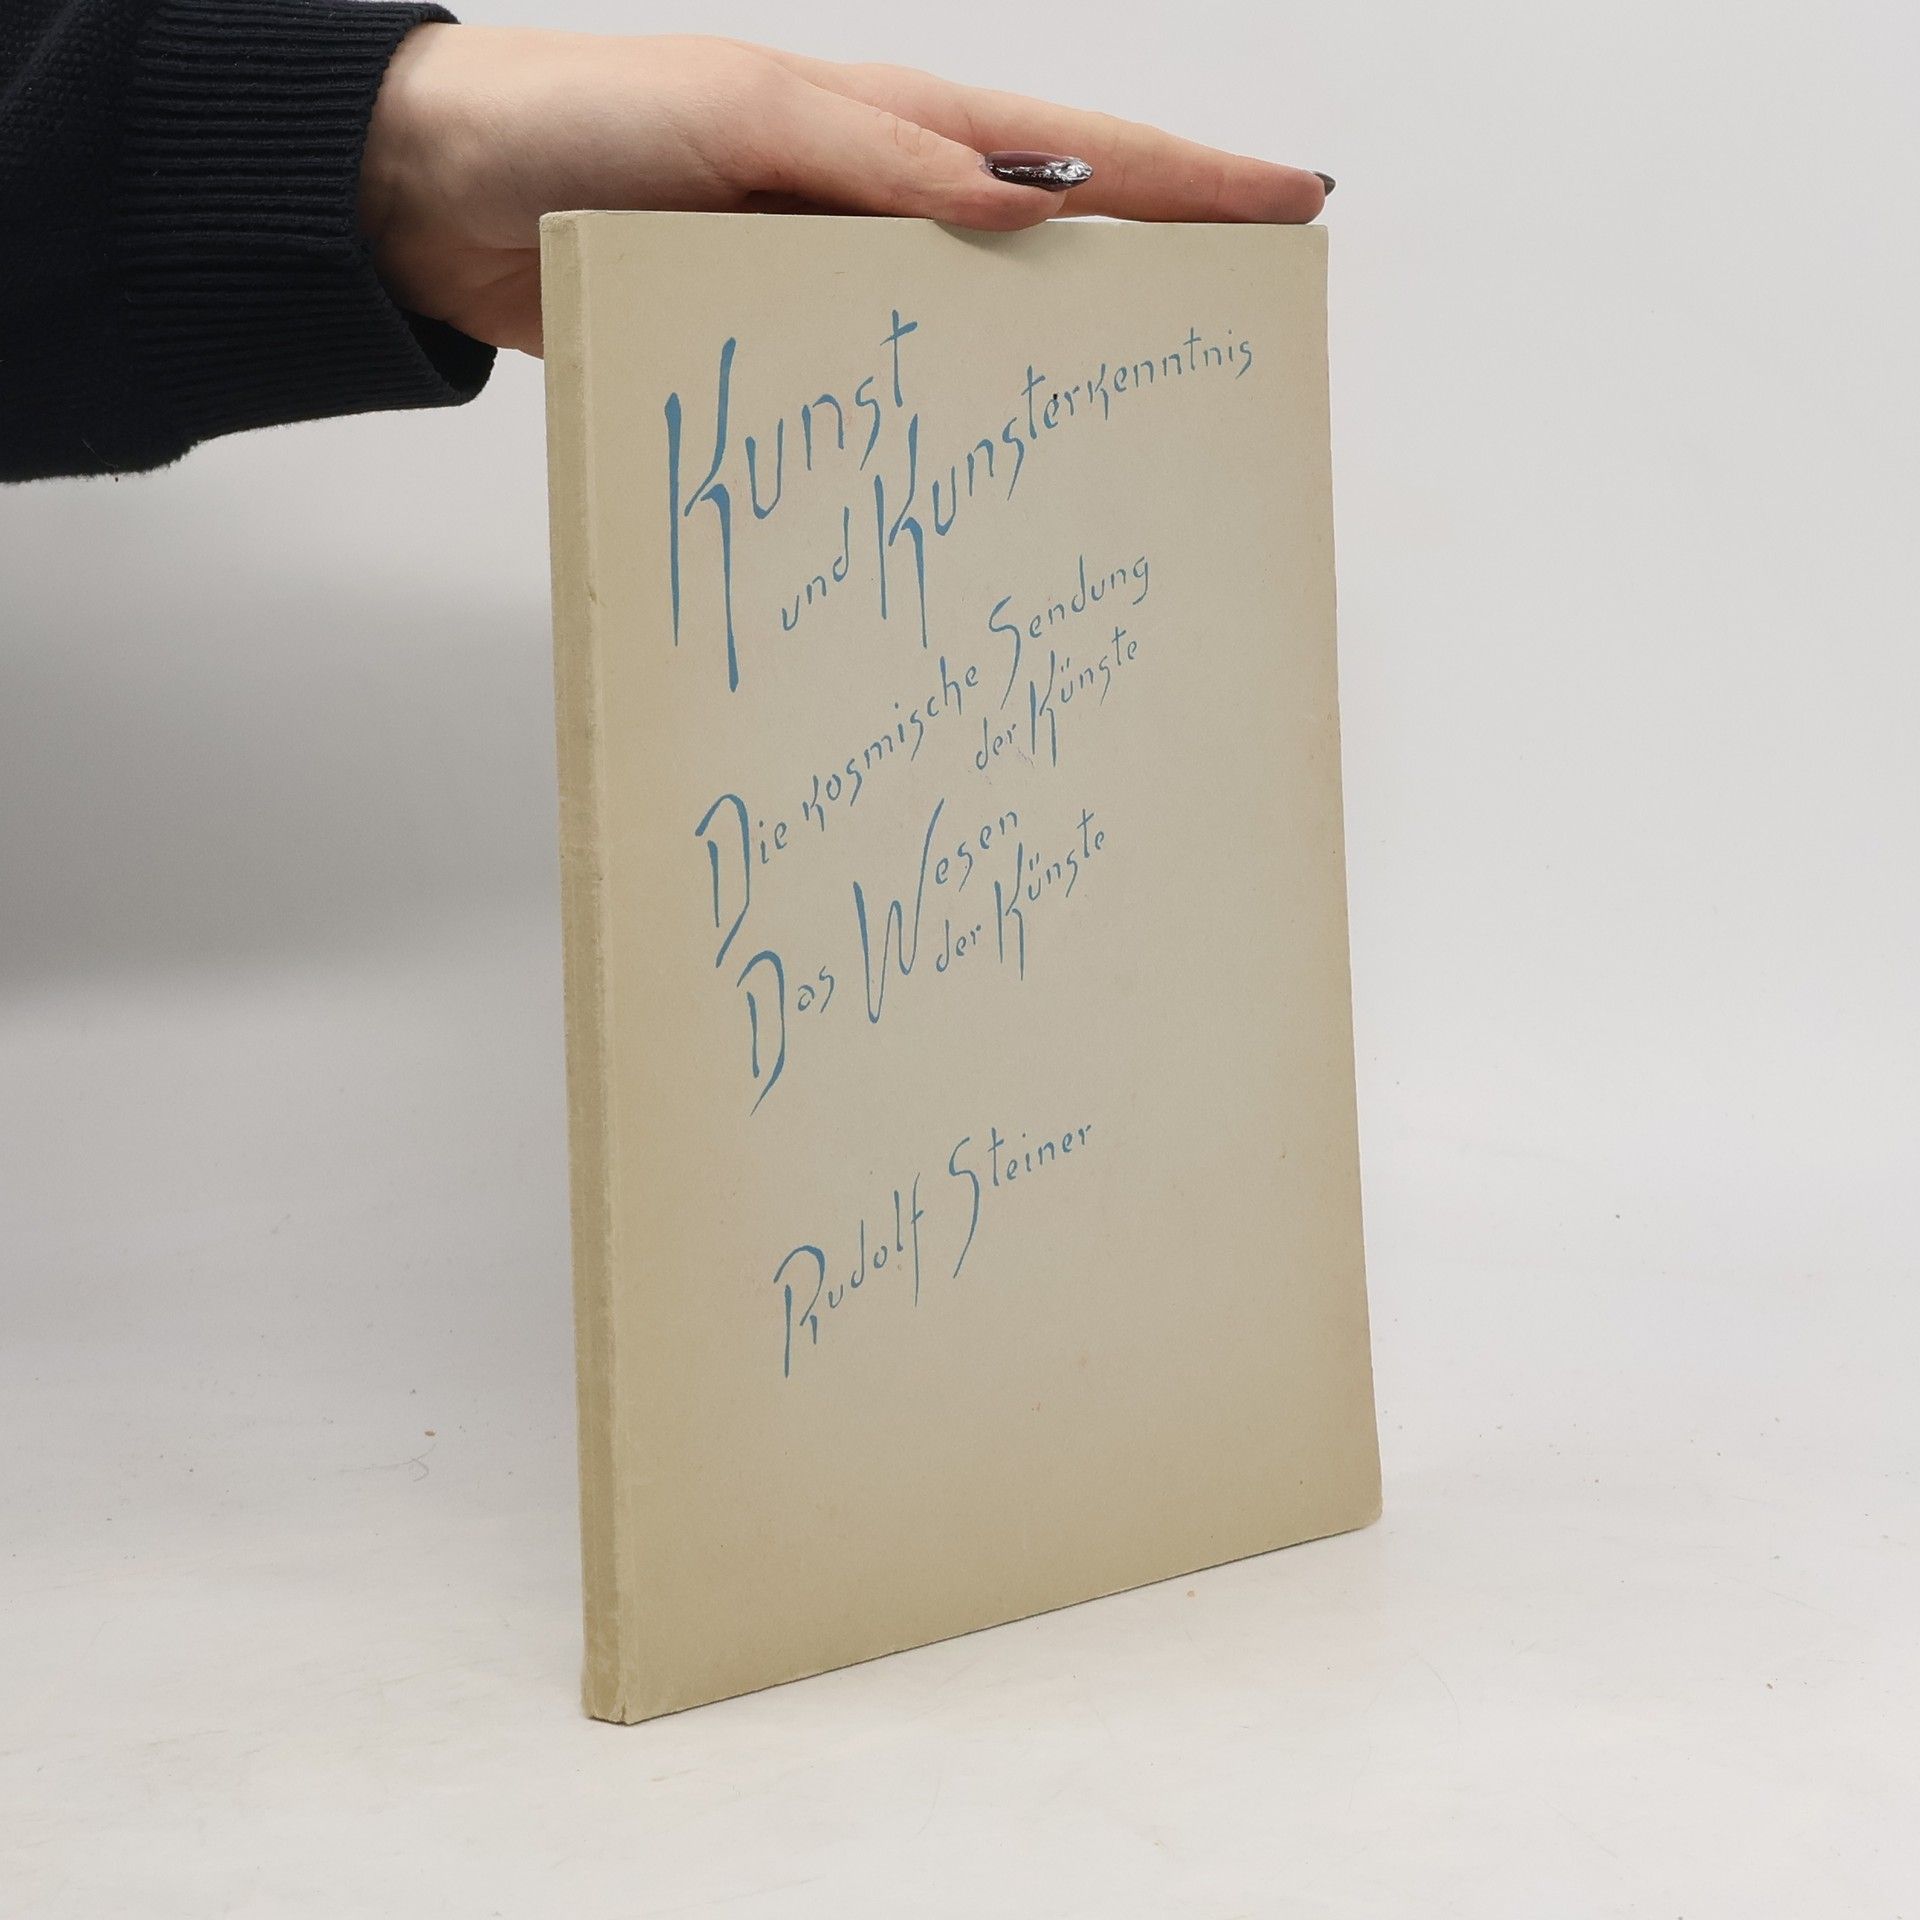 Kunst
und Kunsterkenntnis
Die kosmische Sendung
der Künste
Das Wesen
der Künste
Rudolf Steiner